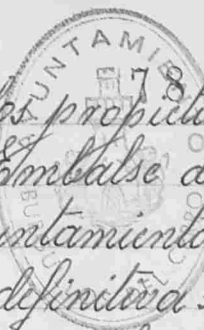 AYUNTAMIE
78
los propieta
Embalse d
untamiento
definitiva.